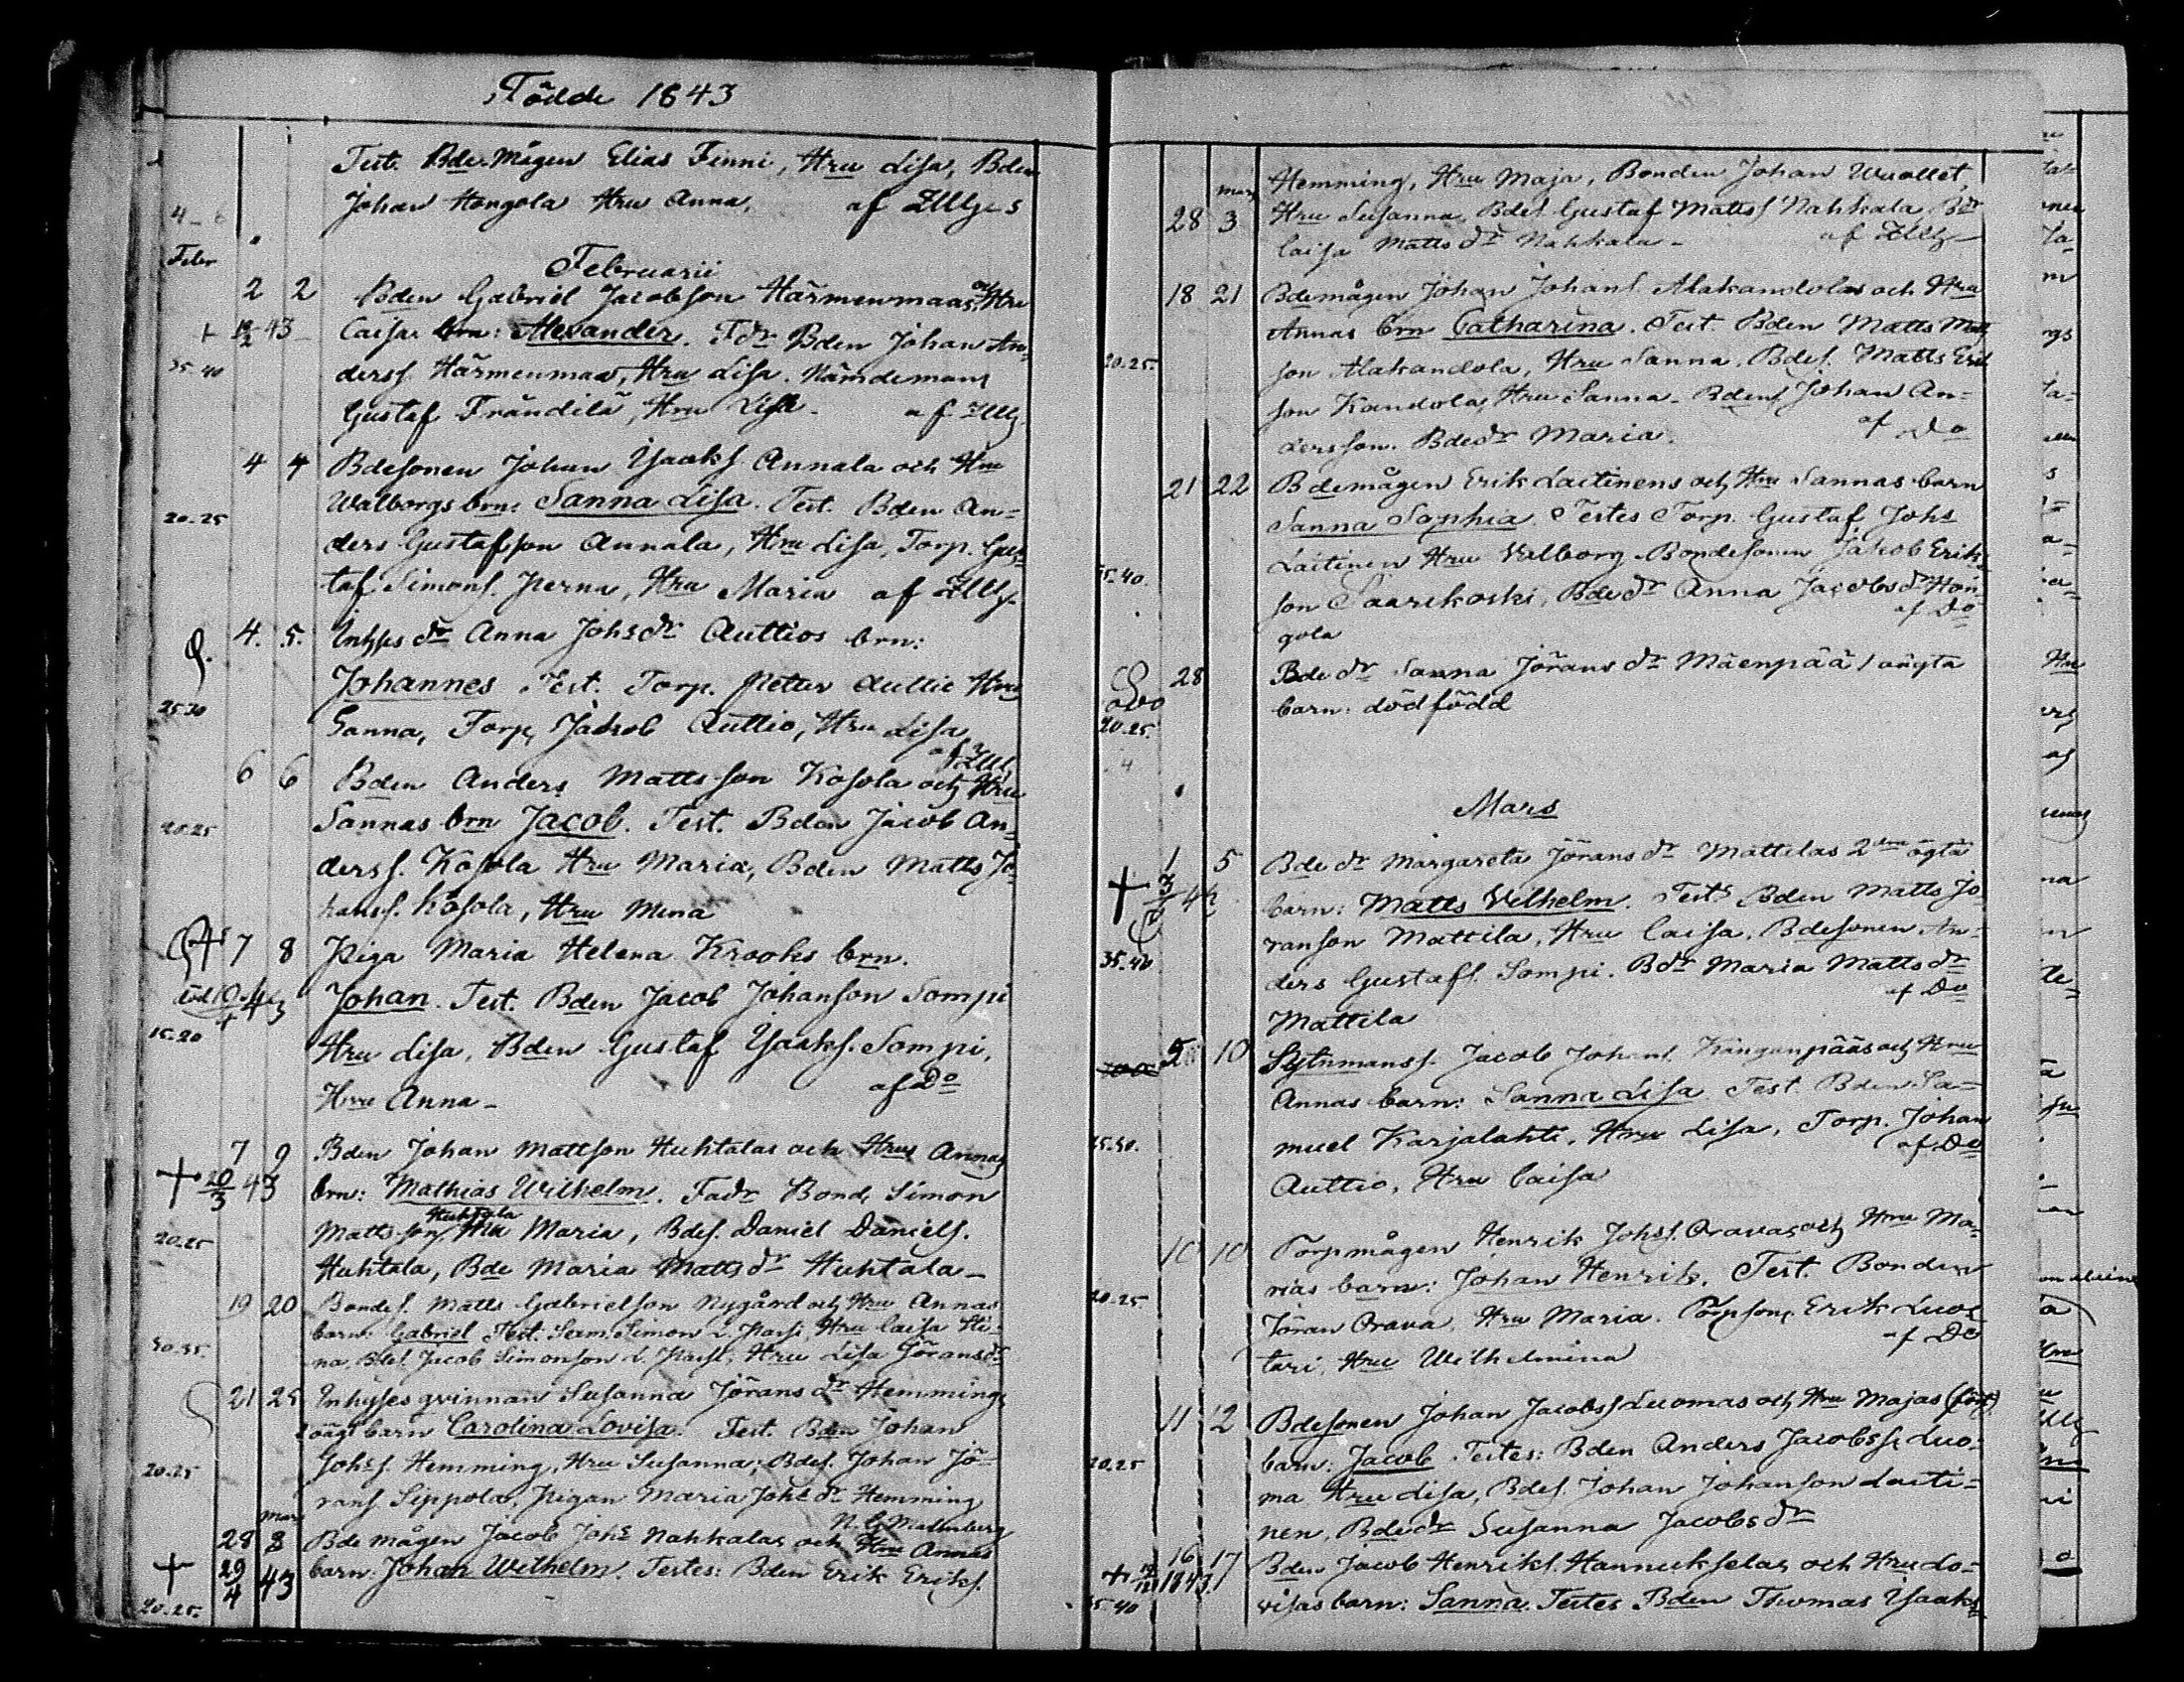 Födde 1843
Test. Bde. Mågen Elias Finni, Hru Lisa, Bden
Johan Hongola Hru Anna,
4-6
Febr
Februarii
2 2 Bden Gabriel Jacobson Härmenmaas och Hru
+ 43 Caisas brn: Alexander. Fdr Bden Johan An=
35-40 derss. Härmenmaa, Hru Lisa. Nämdeman
Gustaf Frändilä, Hru Lisa.
4 4 Bdesonen Johan Isaaks. Annala och Hru
Walborgs brn: Sanna Lisa. Test. Bden An=
20-25
ders Gustafson Annala, Hru Lisa, Torp. Gus=
taf Simons. Perna, Hru Maria
4. 5. Inhys dr Anna Johs dr Auttios brn:
Johannes Test. Torp. Petter Auttio Hru
25-30
Sanna, Torp. Jakob Auttio, Hru Lisa
6 6 Bden Anders Mattsson Kosola och Hru
20-25 Sannas brn Jacob. Test. Bden Jacob An=
derss. Kosola Hru Maria, Bden Matts Jo=
hanss. Kosola, Hru Mina
7 8 Piga Maria Helena Krooks brn.
Johan. Test. Bden Jacob Johanson Sompi
15-20
Hru Lisa, Bden Gustaf Isaaks. Sompi,
Hru Anna - af Do
7 9 Bden Johan Mattson Huhtalas och Hrus Annas
+ 20/3 43 brn: Mathias Wilhelm. Fadr Bond. Simon
Huhtala
20-25 Mattsson, Hru Maria, Bdes. Daniel Daniels.
Huhtala, Bde Maria Matts dr Huhtala -
19 20 Bondes. Matts Gabrielson Nygård och Hru Annas
barn: Gabriel Test. Simon L. Passi, Hru Caisa Sti=
na, Bdes. Jacob Simonson L. Passi, Hru Lisa Jörans dr
21 25 Inhyses qvinnan Susanna Jörans dr Hemmings
oägt barn Carolina Lovisa. Test. Bden Johan
20-25 Johss. Hemming, Hru Susanna; Bdes. Johan Jö=
rans. Sippola, Pigan Maria Johs dr Hemming
N. G. Malmberg
Mars
28 3 Bde mågen Jacob Johs Nahkalas och Hru Annas
+ 29/4 43 barn: Johan Wilhelm. Testes: Bden Erik Eriks.
20-25.
Hemming, Hru Maja, Bonden Johan Wuollet,
Mars
28 3 Hru Susanna, Bdes. Gustaf Matts Nahkala, Bdr
Caisa Matts dr Nahkala -
18 21 Bdemågen Johan Johans. Alakandolas och Hru
Annas brn Catharina. Test. Bden Matts Matts
20-25.
son Alakandola, Hru Sanna, Bdes. Matts Erik
son Kandola, Hru Sanna. Bdens Johan An=
dersson. Bdedr Maria. af Do
21 22 Bdemågen Erik Laitinens och Hru Sannas barn
Sanna Sophia. Testes Torp. Gustaf Johs
Laitinen Hru Valborg. Bondesonen Jakob Eriks
son Saarikoski, Bdedr Anna Jacobs dr Hon
gola af Do
28 Bde dr Sanna Jörans dr Mäenpää / oägta
barn: dödfödd
20-25.
Mars
1 5 Bde dr Margareta Jörans dr Mattilas 2dra ögta
barn: Matts Vilhelm. Tests Bden Matts Jo=
ranson Mattila, Hru Caisa. Bdesonen An=
35-40
ders Gustafs. Sompi. Bdr Maria Matts dr
Mattila af Do
5 10 Sytnmanss. Jacob Johans. Kanganpääs och Hru
Annas barn: Sanna Lisa. Test. Bden Sa=
muel Karjalahti, Hru Lisa, Torp. Johan
Auttio, Hru Caisa af Do
10 10 Torpmågen Henrik Johss. Oravas och Hru Ma=
rias barn: Johan Henrik. Test. Bonden
20-25.
Jöran Orava. Hru Maria. Torpson. Erik Luos
tari, Hru Wilhelmina af Do
11 12 Bdesonen Johan Jacobss Luomas och Hru Majas
barn: Jacob Testes: Bden Anders Jacobss. Luo=
20-25
ma Hru Lisa, Bdes. Johan Johanson Laiti=
nen, Bdedr Susanna Jacobs dr
16 17 Bden Jacob Henriks. Hannukselas och Hru Lo=
35-40 visas barn: Sanna. Testes Bden Thomas Isaaks